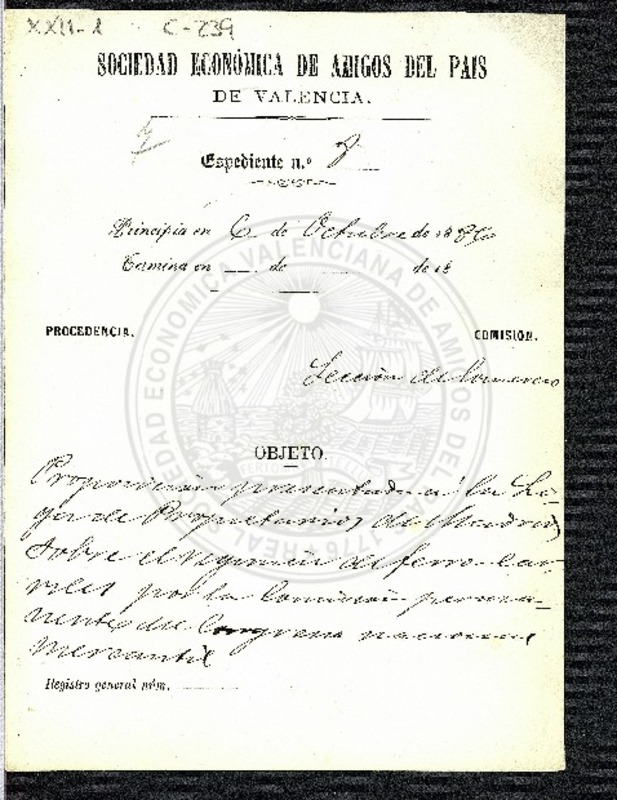 XXII-1 C-239
SOCIEDAD ECONÓMICA DE AMIGOS DEL PAIS
DE VALENCIA.
Espediente n.º 8
Principia en 6 de Octubre de 18
Termina en de de 18
PROCEDENCIA.
COMISION.
Sección de Comercio
OBJETO.
Proposición presentada a la Li-
ga de Propietarios de Madrid
sobre el de ferro-car-
riles por la Comision perma-
nente del Congreso nacional
Mercantil
Registro general núm.